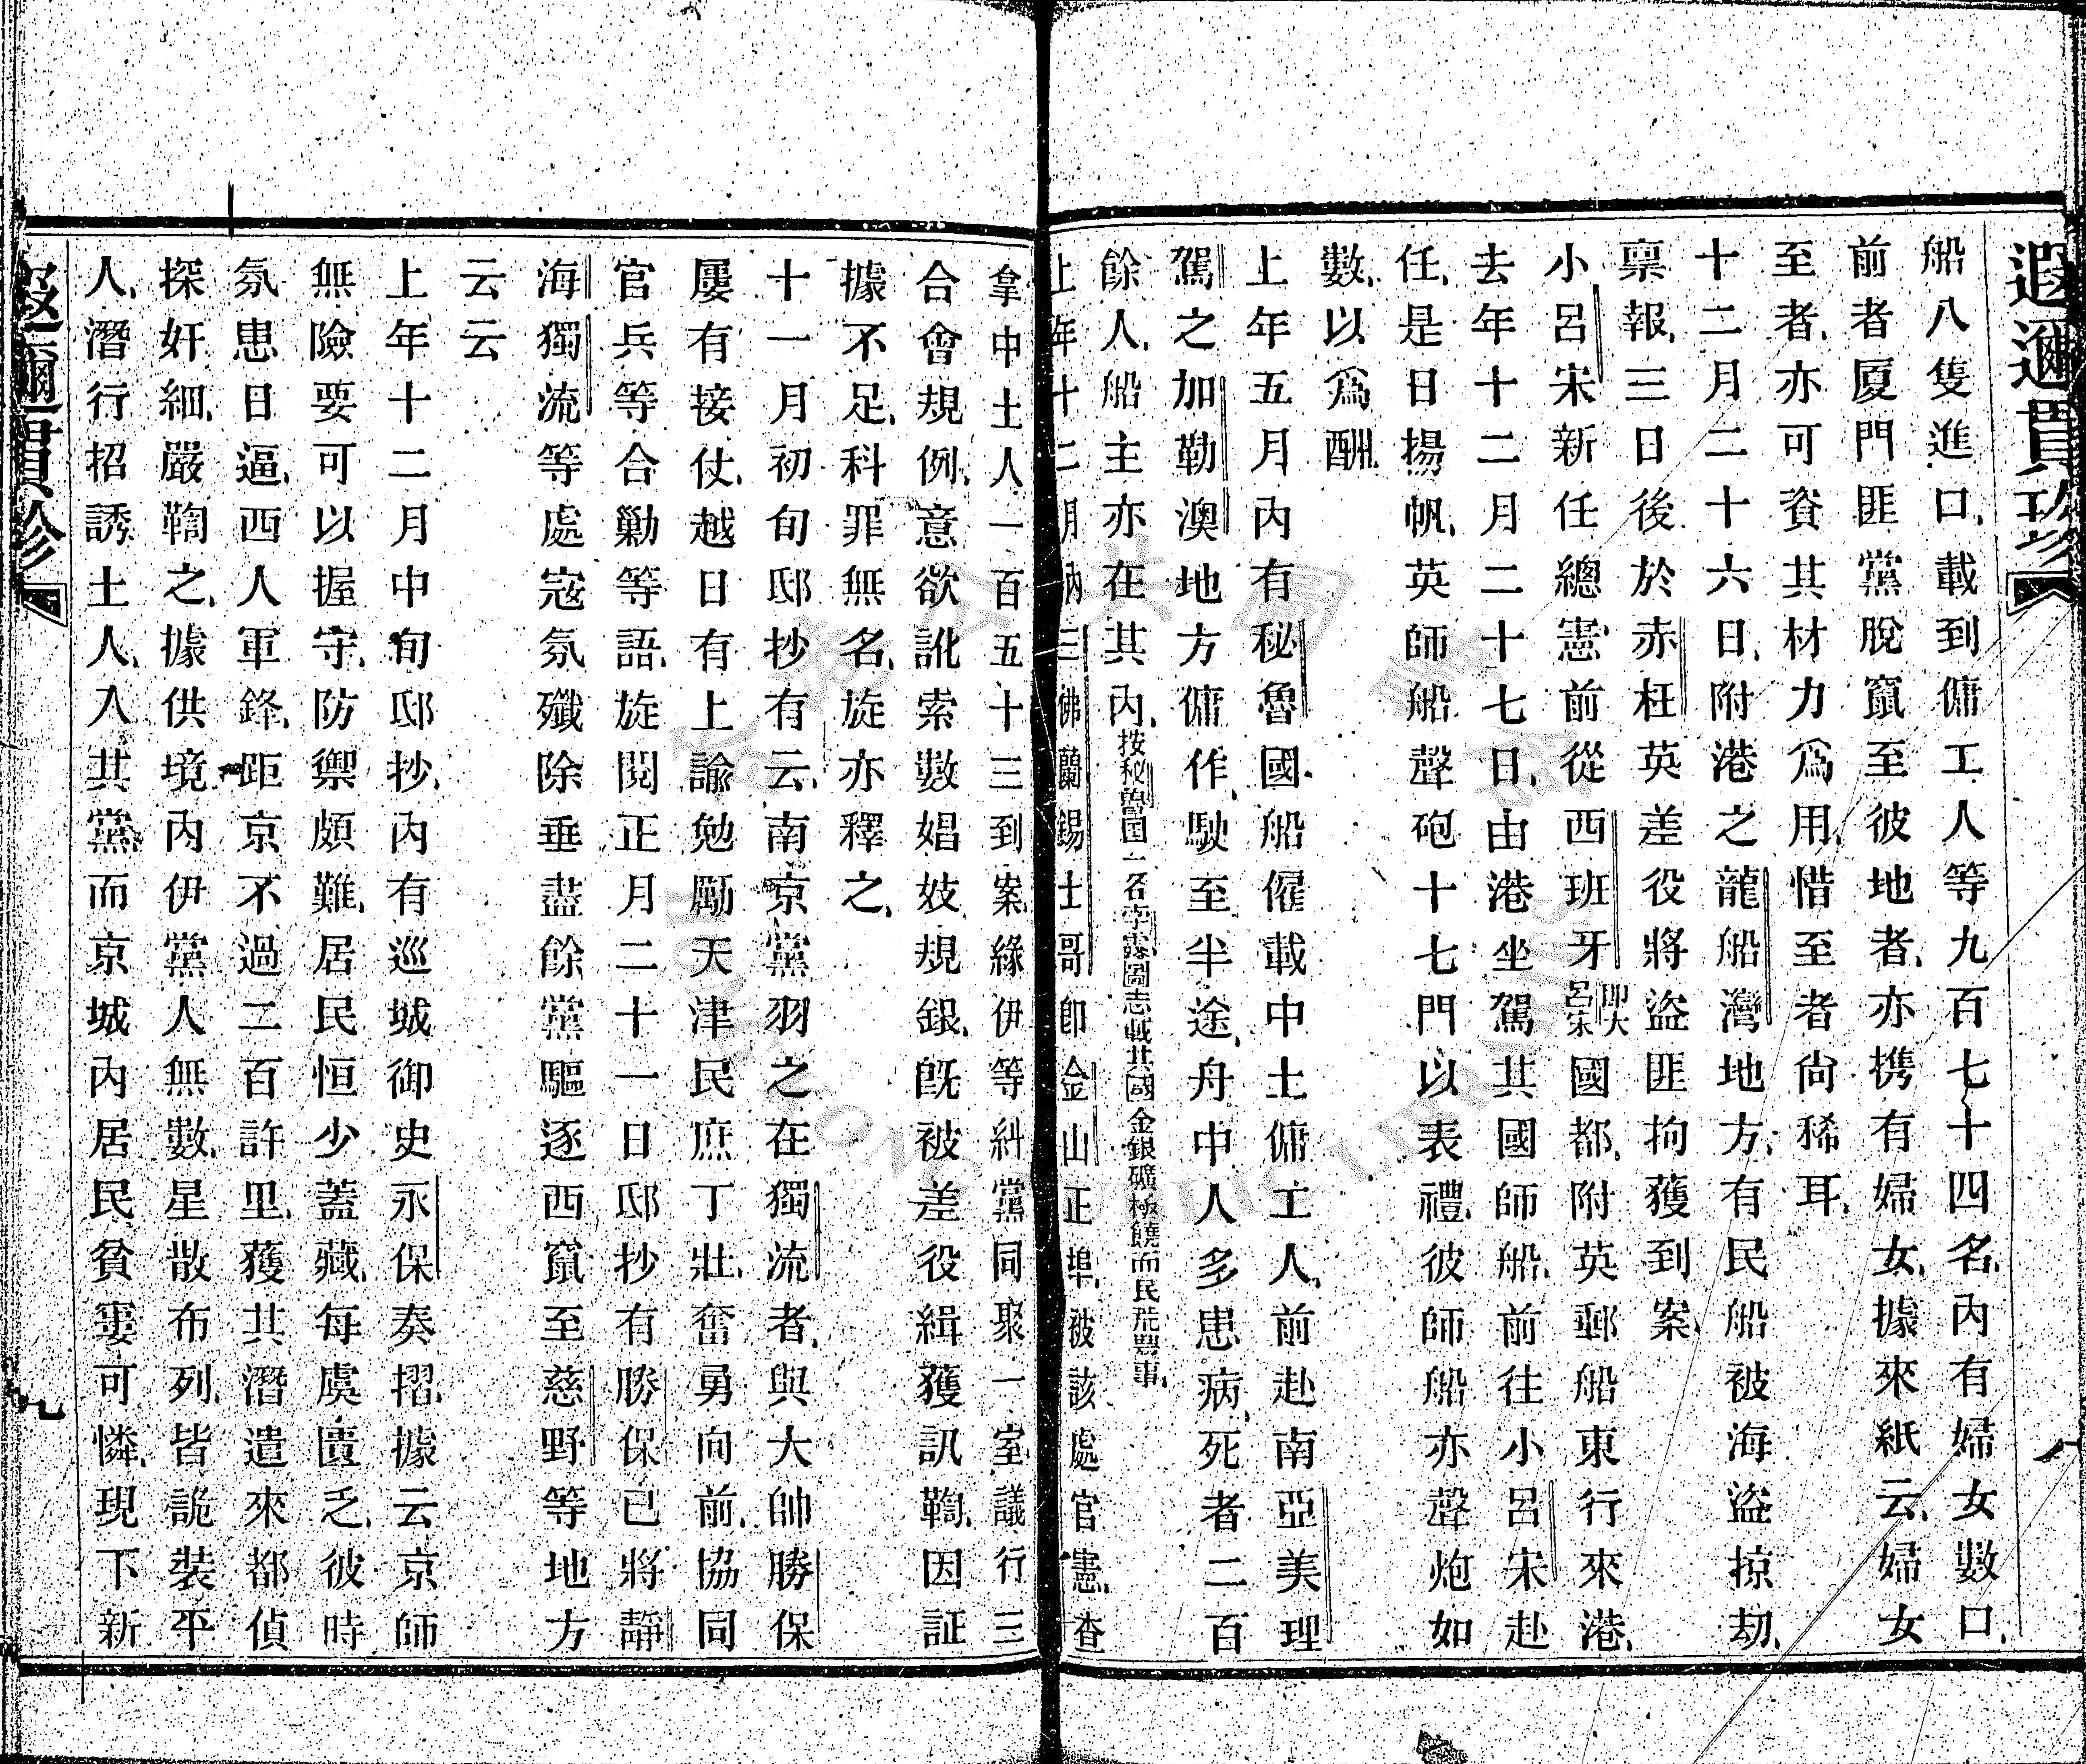 遐邇貫珍
船八隻進口、載到傭工人等九百七十四名、內有婦女數口、
前者厦門匪黨脫竄至彼地者、亦携有婦女、據來紙云、婦女
至者、亦可資其材力爲用、惜至者尙稀耳、
十二月二十六日、附港之龍船灣地方、有民船被海盜掠刧、
稟報、三日後於赤柱英差役將盜匪拘獲到案、
小呂宋新任總憲前從西班牙卽大呂宋國都、附英郵船東行來港、
去年十二月二十七日、由港坐駕其國師船、前往小呂宋赴
任、是日揚帆、英師船聲砲十七門以表禮、彼師船亦聲炮如
數、以爲酬、
上年五月內有秘魯國船僱載中土傭工人、前赴南亞美理
駕之加勒澳地方傭作、駛至半途、舟中人多患病、死者二百
餘人、船主亦在其內、按秘魯國一名孛露、圖志載其國金銀礦極饒而民荒豐事、
上年十二月朔納三佛蘭錫士哥卽金山正埠、被該處官憲、查
拿中土人一百五十三到案、緣伊等糾黨同聚一室、議行三
合會規例、意欲訛索數娼妓規銀、旣被差役緝獲訊鞫、因証
據不足、科罪無名、旋亦釋之、
十一月初旬邸抄有云、南京黨羽之在獨流者、與大帥勝保
屢有接仗、越日有上諭勉勵天津民庶丁壯、奮勇向前、協同
官兵等合勦等語、旋閱正月二十一日邸抄有勝保已將靜
海獨流等處寇氛殲除垂盡、餘黨驅逐西竄至慈野等地方
云云
上年十二月中旬邸抄、內有巡城御史永保奏摺、據云京師
無險要可以握守、防禦頗難、居民恒少蓋藏、每虞匱乏、彼時
氛患日逼、西人軍鋒、距京不過二百許里、獲其潛遣來都偵
探奸細、嚴鞫之、據供境內伊黨人無數、星散布列、皆詭裝平
人、潛行招誘土人、入其黨、而京城內居民貧窶可憐、現下新
遐邇貫珍
九